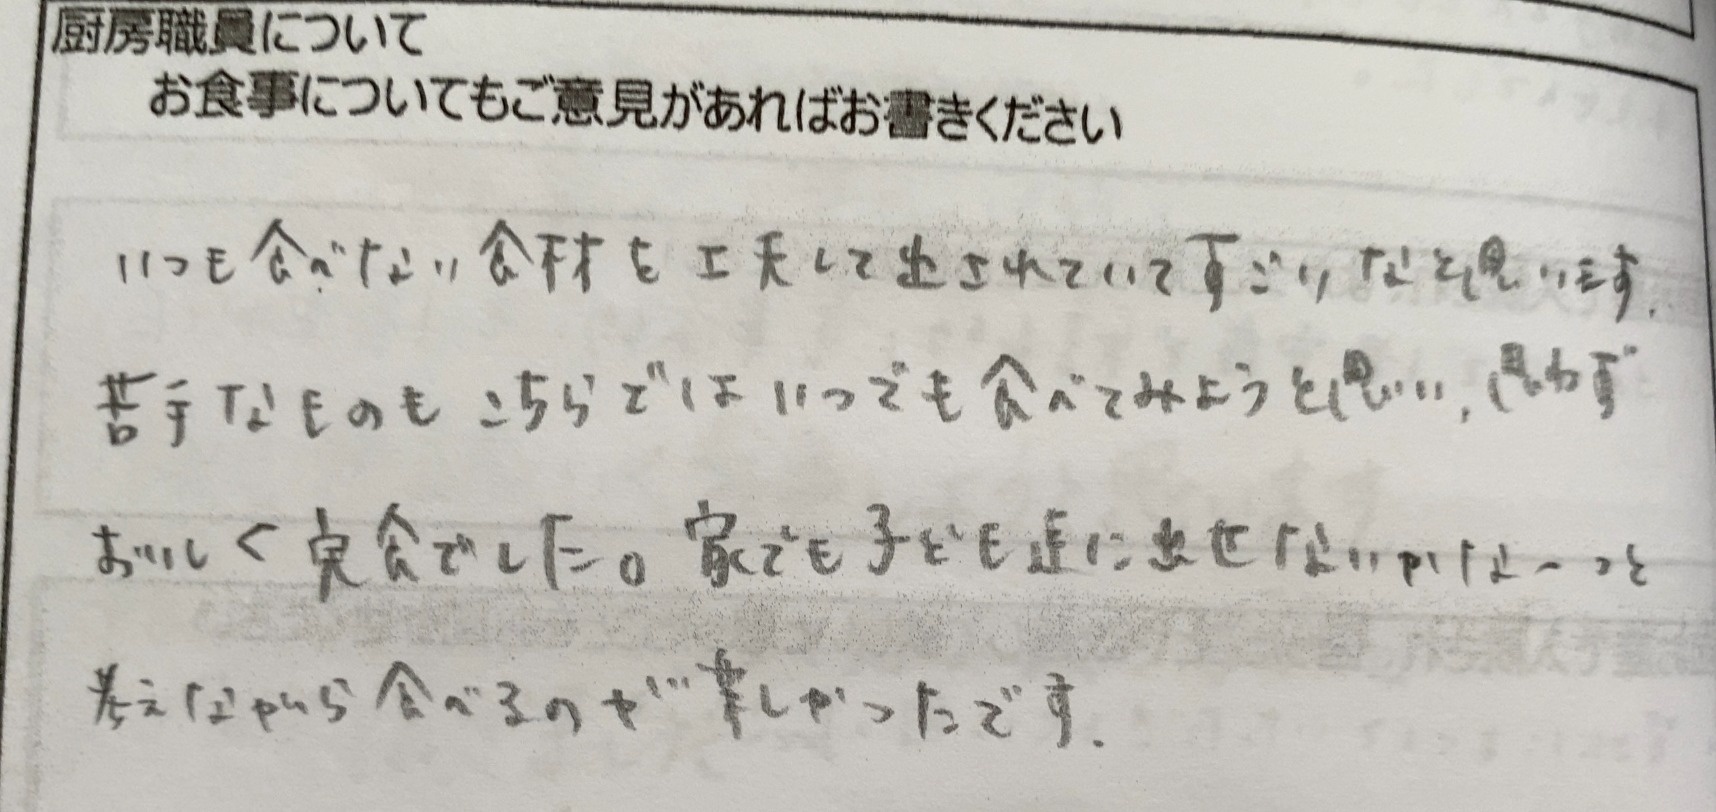 厨房職員について
お食事についてもご意見があればお書きください
いつも食べない食材を工夫して出されていてすごいなと思います.
苦手なものもこちらではいつでも食べてみようと思い、思わず
おいしく完食でした。家でも子ども達に出せないかな〜っと
考えながら食べるのが楽しかったです.